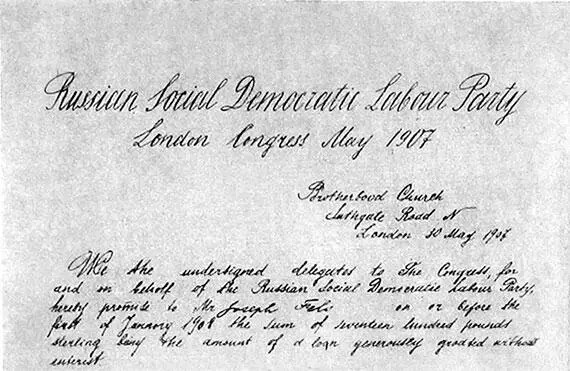 Russian Social Democratic Labour Party
London Congress May 1907
Brotherhood Church
Suthgate Road N
London 30 May 1907
We the undersigned delegates to The Congress, for
and on behalf of the Russian Social Democratic Labour Party,
hereby promise to Mr Joseph Fels on or before the
first of January 1908 the sum of seventeen hundred pounds
sterling being the amount of a loan generously granted without
interest.